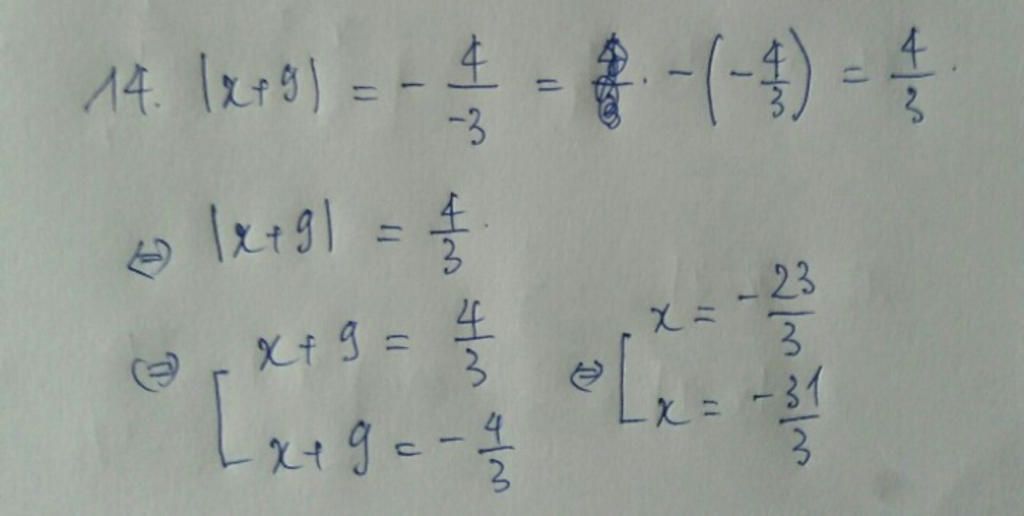 14. |x+9| = - 4/-3 = - (- 4/3) = 4/3.
⇔ |x+9| = 4/3.
⇔ [ x+9 = 4/3 ⇔ [ x = - 23/3
x+9 = - 4/3 x = - 31/3